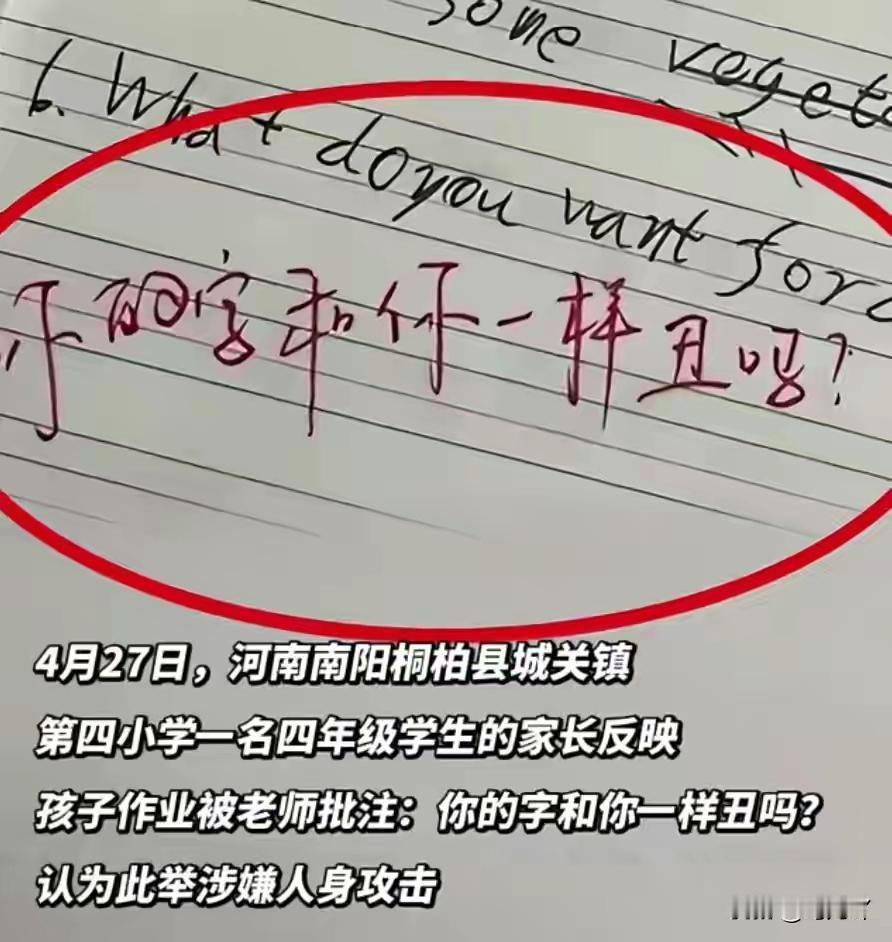 some veget
6. What do you want for
你的字和你一样丑吗?
4月27日，河南南阳桐柏县城关镇
第四小学一名四年级学生的家长反映
孩子作业被老师批注：你的字和你一样丑吗?
认为此举涉嫌人身攻击